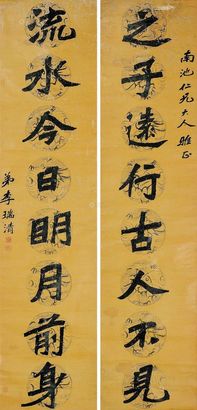 南池仁兄大人雅正
之子遠行古人不見
流水今日眀月前身
弟李瑞清